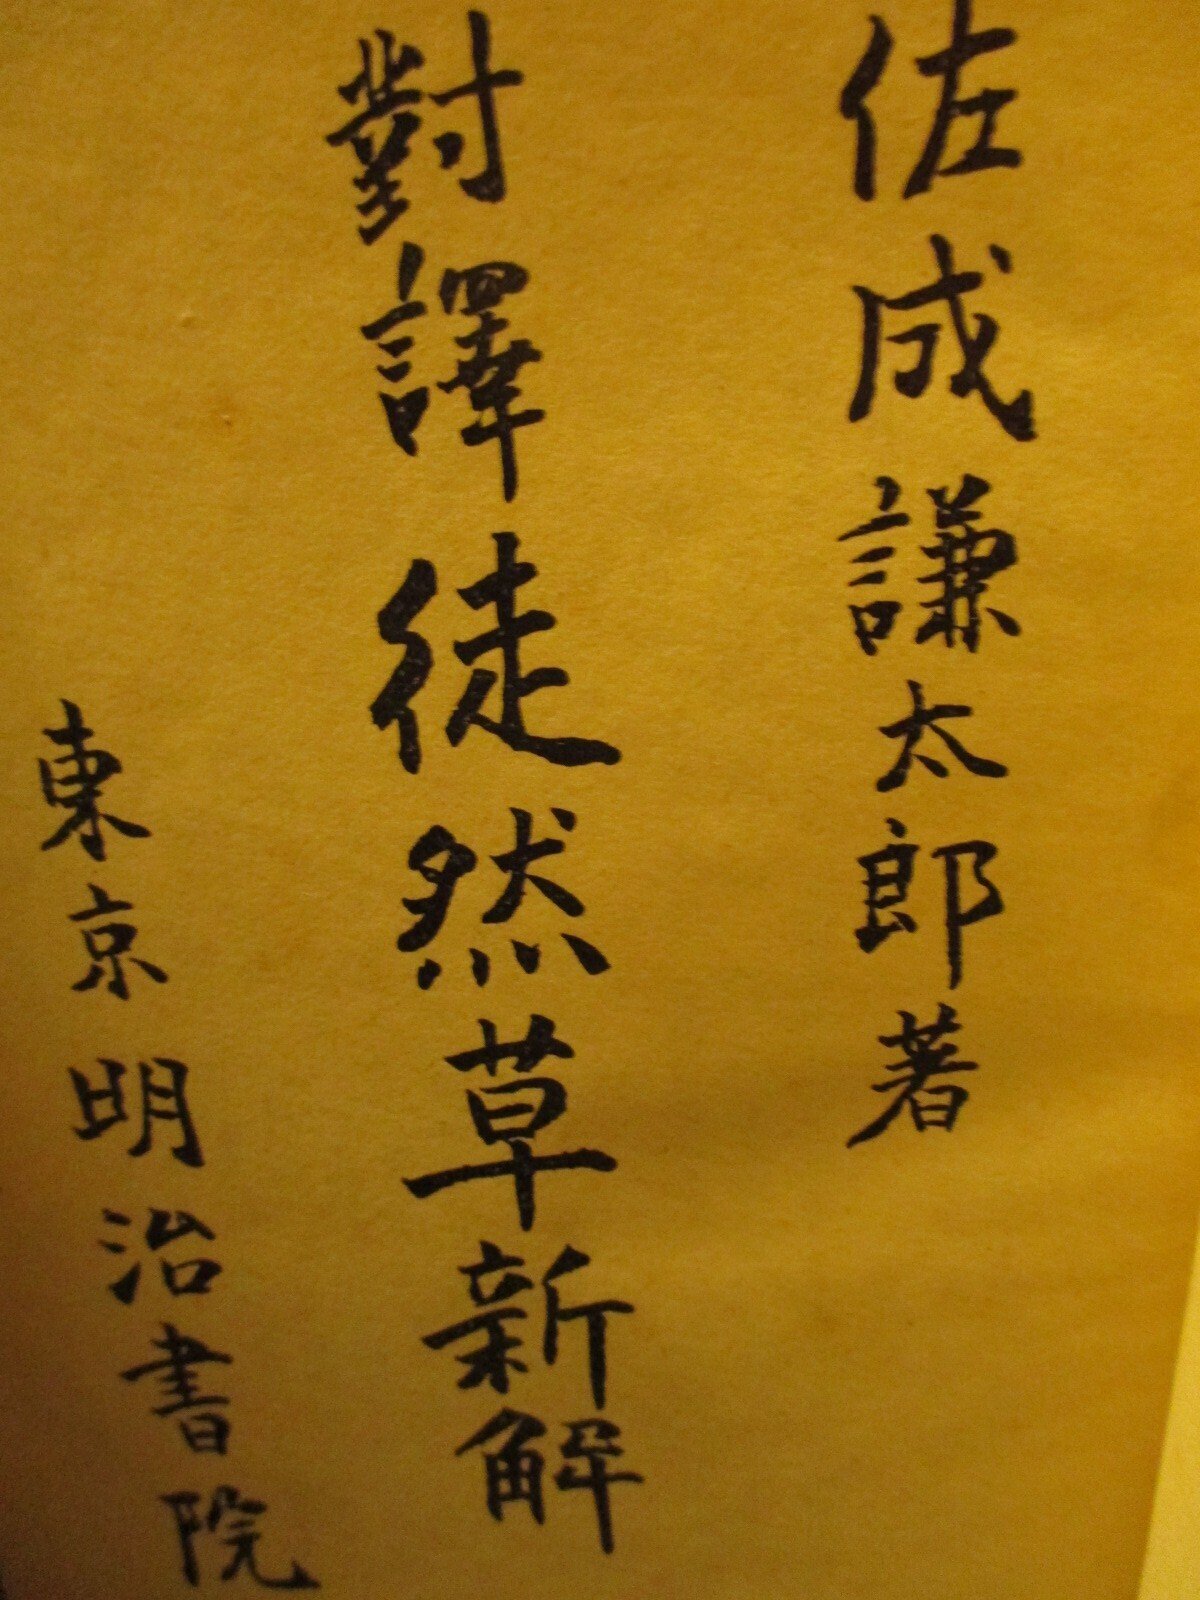 佐成謙太郎著
對譯徒然草新解
東京明治書院